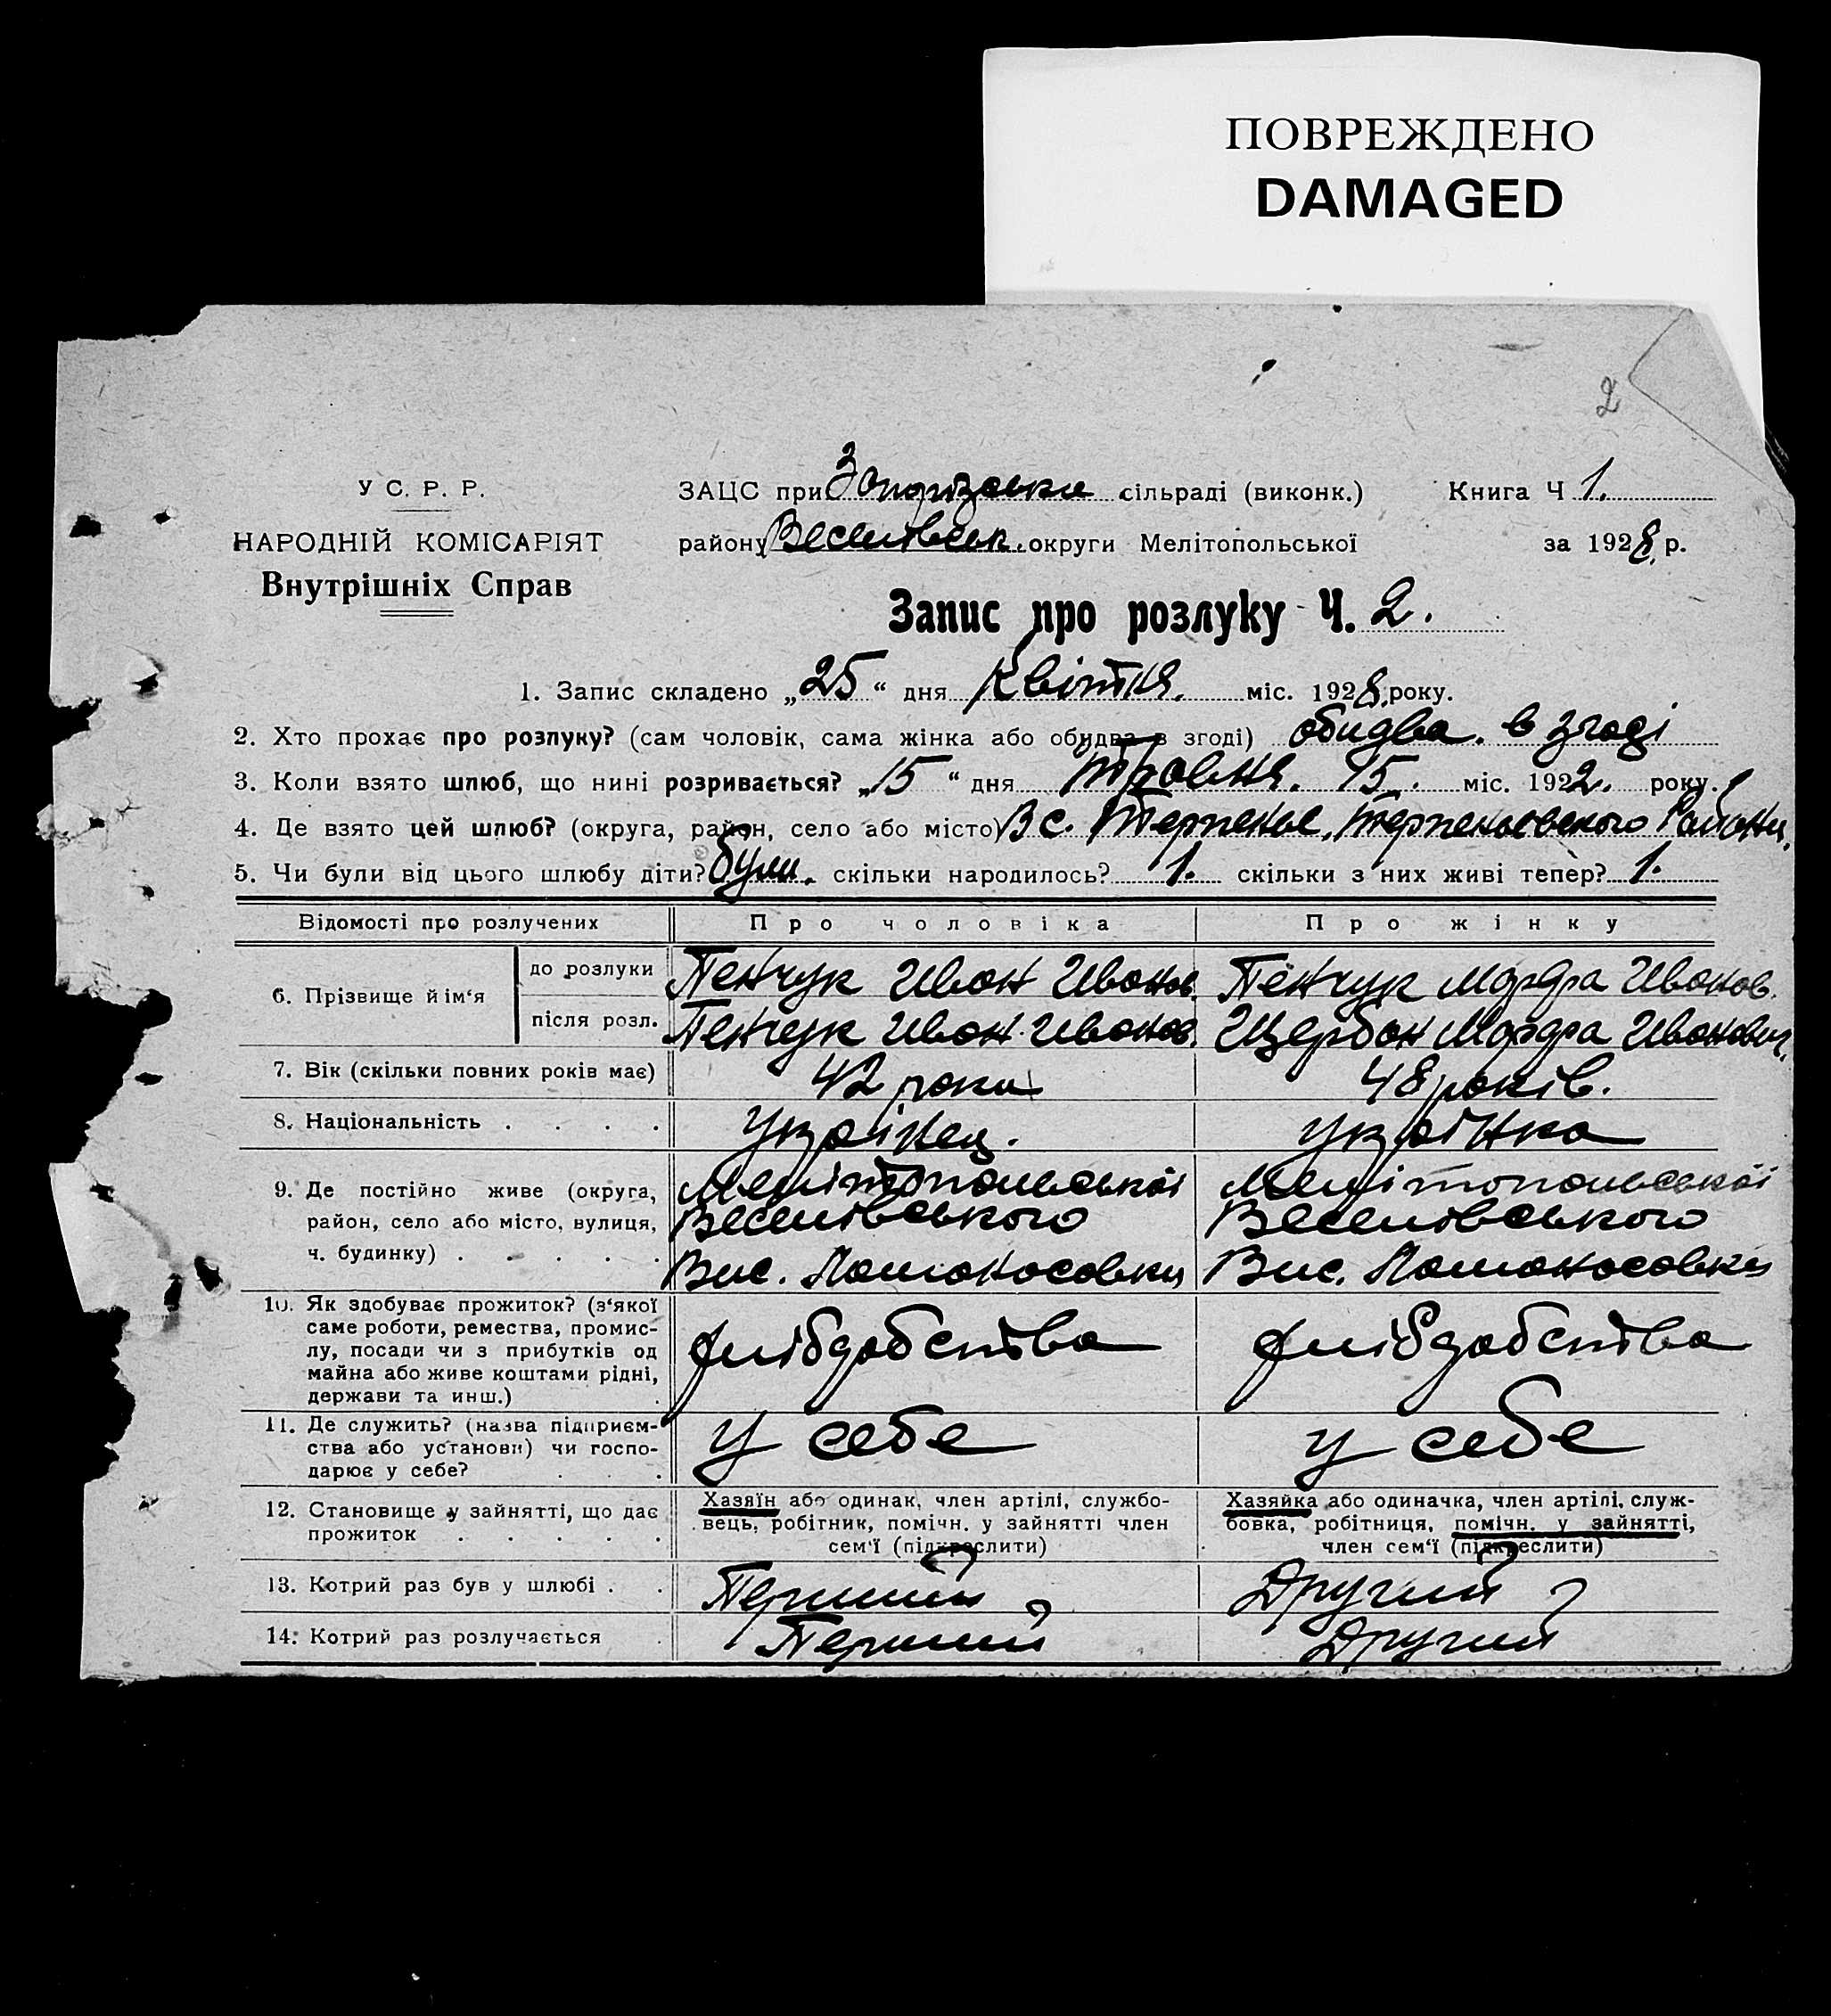 ПОВРЕЖДЕНО
DAMAGED
2
У С. Р. Р.
НАРОДНІЙ КОМІСАРІЯТ
Внутрішніх Справ
ЗАЦС при Запорізська сільраді (виконк.) Книга Ч 1.
району Веселівськ. округи Мелітопольської за 1928 р.
Запис про розлуку Ч. 2.
1. Запис складено „25“ дня Квітня. міс. 1928 року.
2. Хто прохає про розлуку? (сам чоловік, сама жінка або обидва в згоді) обидва. в згоді
3. Коли взято шлюб, що нині розривається? „15“ дня травня. 15. міс. 1922. року.
4. Де взято цей шлюб? (округа, район, село або місто) В с. Терпенье, Терпеньевского Району.
5. Чи були від цього шлюбу діти? були. скільки народилось? 1. скільки з них живі тепер? 1.
Відомості про розлучених Про чоловіка Про жінку
6. Прізвище й ім‘я
до розлуки Пенчук Иван Иванов. Пенчук Марфа Иванов.
після розл. Пенчук Иван Иванов. Щербан Марфа Иванович.
7. Вік (скільки повних років має) 42 роки 48 років.
8. Національність . . . . Українец. українка
9. Де постійно живе (округа,
район, село або місто, вулиця,
ч. будинку) . . . . .
Мелітопольської
Веселівського
Вис. Ломоносовки
Мелітопольської
Веселівського
Вис. Ломоносовки
10. Як здобуває прожиток? (з‘якої
саме роботи, ремества, промис-
лу, посади чи з прибутків од
майна або живе коштами рідні,
держави та инш.) .
хлібдобства хлібдобства
11. Де служить? (назва підприєм-
ства або установи) чи госпо-
дарює у себе? . . .
у себе у себе
12. Становище у зайнятті, що дає
прожиток . . . . .
Хазяїн або одинак, член артілі, службо-
вець, робітник, помічн. у зайнятті член
сем‘ї (підкреслити)
Хазяйка або одиначка, член артілі, служ-
бовка, робітниця, помічн. у зайнятті,
член сем‘ї (підкреслити)
13. Котрий раз був у шлюбі . . Перший Другий
14. Котрий раз розлучається . Перший Другий